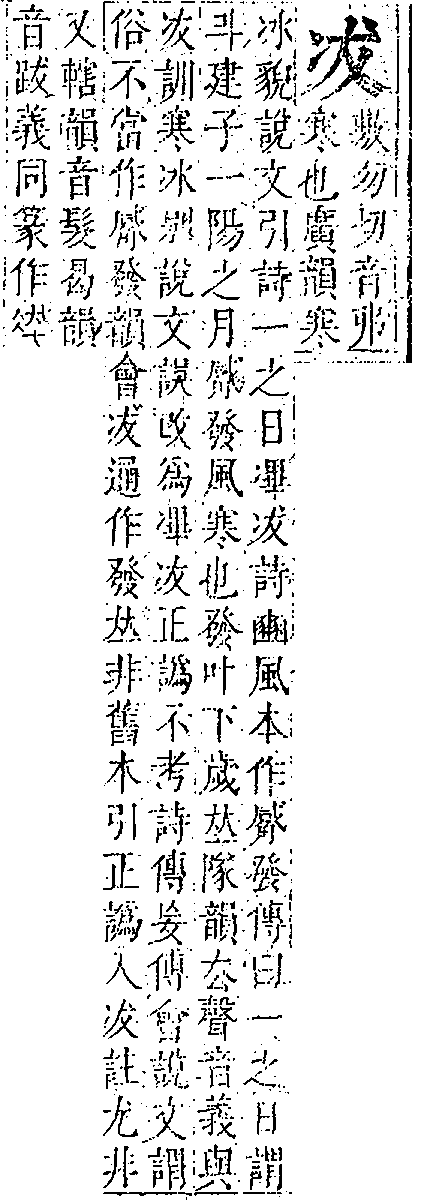 冹
敷勿切音弗
寒也廣韻寒
冰貌說文引詩一之日滭冹詩豳風本作觱發傳曰一之日謂
斗建子一陽之月觱發風寒也發叶下歲𠀤隊韻去聲音義與
冹訓寒冰別說文誤改爲滭冹正譌不考詩傳妄傅會說文謂
俗不當作觱發韻會冹通作發𠀤非舊本引正譌入冹註尤非
又轄韻音髮曷韻
音跋義同篆作